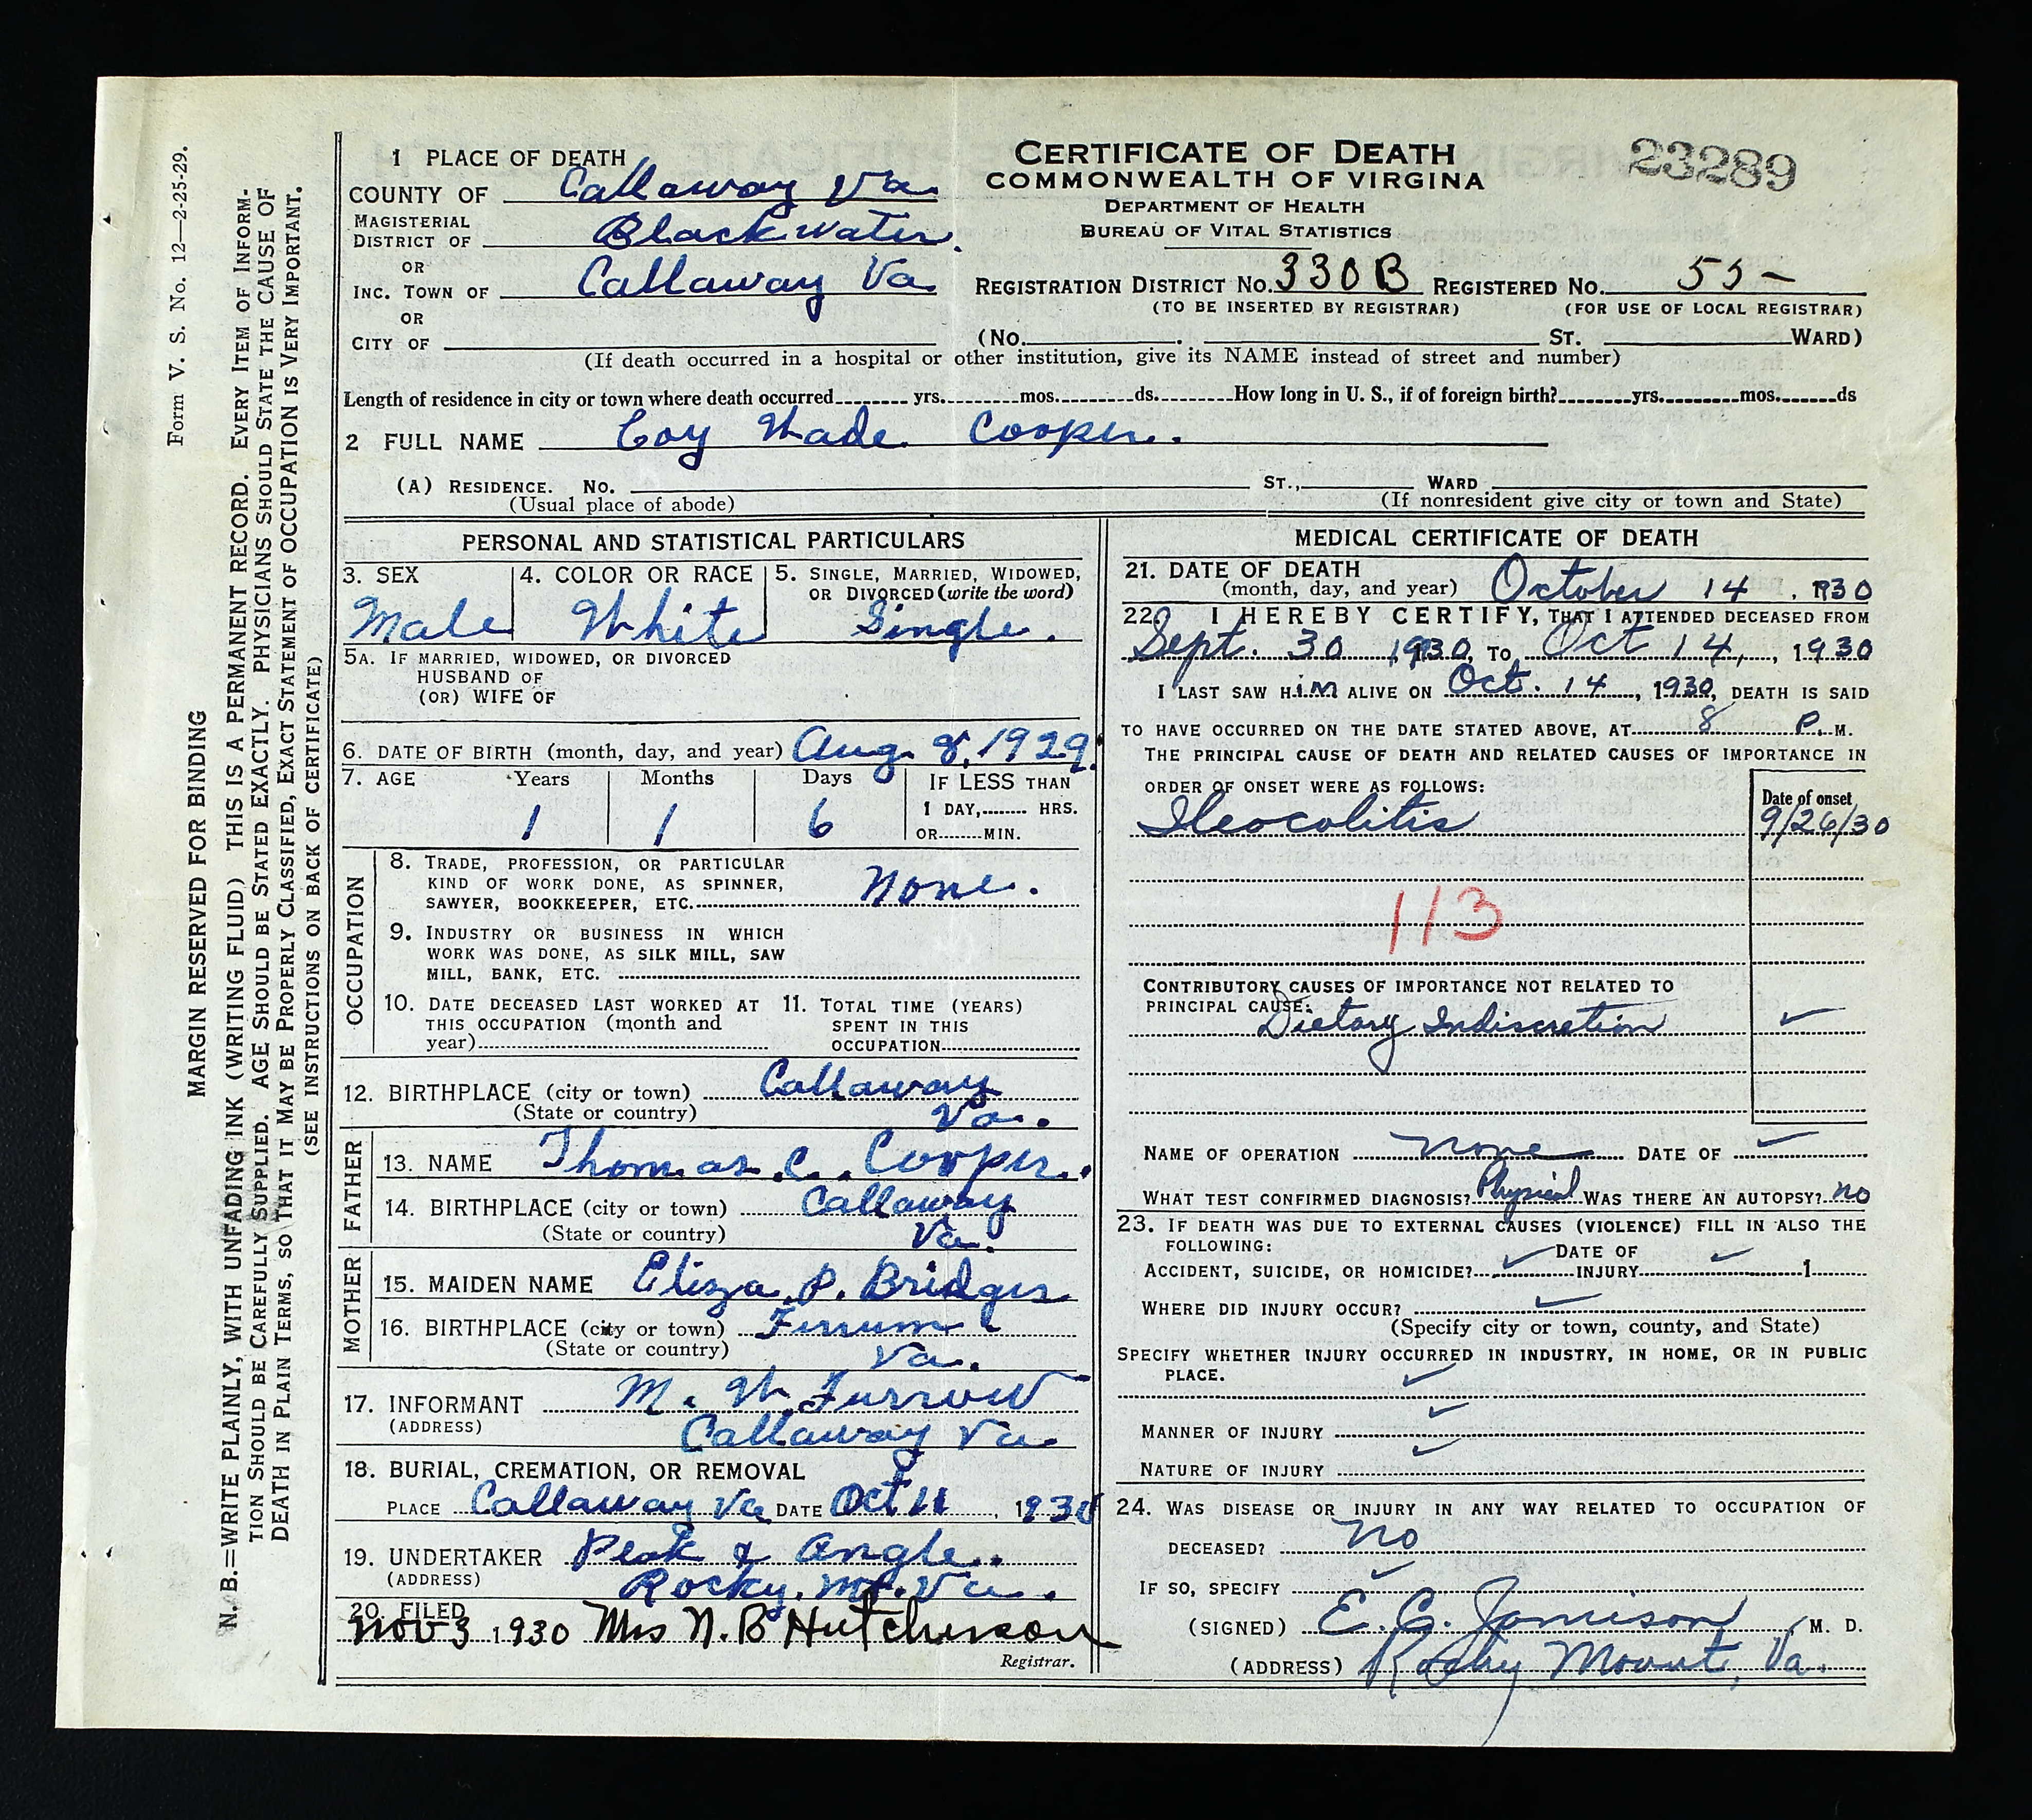 Form V. S. No. 12—2-25-29.
MARGIN RESERVED FOR BINDING
N. B.=WRITE PLAINLY, WITH UNFADING INK (WRITING FLUID) THIS IS A PERMANENT RECORD. EVERY ITEM OF INFORM-
TION SHOULD BE CAREFULLY SUPPLIED. AGE SHOULD BE STATED EXACTLY. PHYSICIANS SHOULD STATE THE CAUSE OF
DEATH IN PLAIN TERMS, SO THAT IT MAY BE PROPERLY CLASSIFIED, EXACT STATEMENT OF OCCUPATION IS VERY IMPORTANT.
(SEE INSTRUCTIONS ON BACK OF CERTIFICATE)
CERTIFICATE OF DEATH
COMMONWEALTH OF VIRGINA
DEPARTMENT OF HEALTH
BUREAU OF VITAL STATISTICS
23289
1 PLACE OF DEATH
COUNTY OF Callaway Va
MAGISTERIAL
DISTRICT OF Blackwater.
OR
INC. TOWN OF Callaway Va.
REGISTRATION DISTRICT No. 330B REGISTERED No. 55-
(TO BE INSERTED BY REGISTRAR) (FOR USE OF LOCAL REGISTRAR)
OR
CITY OF (No. ST. WARD)
(If death occurred in a hospital or other institution, give its NAME instead of street and number)
Length of residence in city or town where death occurred yrs. mos. ds. How long in U. S., if of foreign birth? yrs. mos. ds
2 FULL NAME Coy Wade Cooper.
(A) RESIDENCE. No. ST., WARD
(Usual place of abode) (If nonresident give city or town and State)
PERSONAL AND STATISTICAL PARTICULARS
3. SEX 4. COLOR OR RACE 5. SINGLE, MARRIED, WIDOWED,
OR DIVORCED (write the word)
Male White Single.
5A. IF MARRIED, WIDOWED, OR DIVORCED
HUSBAND OF
(OR) WIFE OF
6. DATE OF BIRTH (month, day, and year) Aug. 8, 1929.
7. AGE Years Months Days IF LESS THAN
1 DAY, HRS.
1 1 6 OR MIN.
OCCUPATION
8. TRADE, PROFESSION, OR PARTICULAR
KIND OF WORK DONE, AS SPINNER,
SAWYER, BOOKKEEPER, ETC. None.
9. INDUSTRY OR BUSINESS IN WHICH
WORK WAS DONE, AS SILK MILL, SAW
MILL, BANK, ETC.
10. DATE DECEASED LAST WORKED AT 11. TOTAL TIME (YEARS)
THIS OCCUPATION (month and SPENT IN THIS
year) OCCUPATION
12. BIRTHPLACE (city or town) Callaway
(State or country) Va.
FATHER
13. NAME Thomas. C. Cooper.
14. BIRTHPLACE (city or town) Callaway
(State or country) Va.
MOTHER
15. MAIDEN NAME Eliza. P. Bridges
16. BIRTHPLACE (city or town) Ferrum
(State or country) Va.
17. INFORMANT M. W. Furrow
(ADDRESS) Callaway Va
18. BURIAL, CREMATION, OR REMOVAL
PLACE Callaway Va DATE Oct 11, 1930
19. UNDERTAKER Peak & Angle.
(ADDRESS) Rocky. Mt. Va.
20. FILED
Nov 3 1930 Mrs N. B Hutcherson
Registrar.
MEDICAL CERTIFICATE OF DEATH
21. DATE OF DEATH
(month, day, and year) October 14. 1930
22. I HEREBY CERTIFY, THAT I ATTENDED DECEASED FROM
Sept. 30 1930, TO Oct 14, 1930
I LAST SAW HIM ALIVE ON Oct. 14, 1930, DEATH IS SAID
TO HAVE OCCURRED ON THE DATE STATED ABOVE, AT 8 P. M.
THE PRINCIPAL CAUSE OF DEATH AND RELATED CAUSES OF IMPORTANCE IN
ORDER OF ONSET WERE AS FOLLOWS:
Date of onset
Ileocolitis 9/26/30
113
CONTRIBUTORY CAUSES OF IMPORTANCE NOT RELATED TO
PRINCIPAL CAUSE:
Dietary Indiscretion ✓
NAME OF OPERATION none DATE OF ✓
WHAT TEST CONFIRMED DIAGNOSIS? Physical WAS THERE AN AUTOPSY? no
23. IF DEATH WAS DUE TO EXTERNAL CAUSES (VIOLENCE) FILL IN ALSO THE
FOLLOWING: ✓ DATE OF ✓
ACCIDENT, SUICIDE, OR HOMICIDE? INJURY 1
WHERE DID INJURY OCCUR? ✓
(Specify city or town, county, and State)
SPECIFY WHETHER INJURY OCCURRED IN INDUSTRY, IN HOME, OR IN PUBLIC
PLACE. ✓
MANNER OF INJURY ✓
NATURE OF INJURY ✓
24. WAS DISEASE OR INJURY IN ANY WAY RELATED TO OCCUPATION OF
DECEASED? no
IF SO, SPECIFY ✓
(SIGNED) E. C. Jamison, M. D.
(ADDRESS) Rocky Mount, Va.